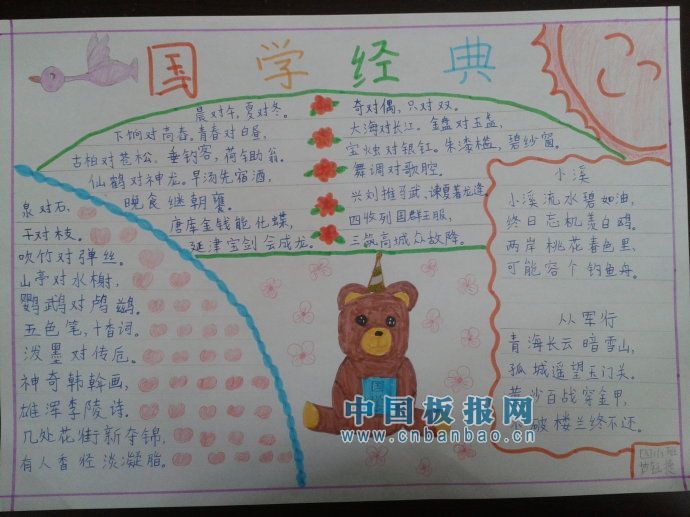 国学经典
晨对午,夏对冬。
下饷对高舂,青春对白昼,
古柏对苍松。垂钓客,荷锄翁。
仙鹤对神龙。旱汤先宿酒,
晚食继朝饔。
唐库金钱能化蝶,
延津宝剑会成龙。
奇对偶,只对双。
大海对长江。金盘对玉盏,
宝烛对银釭。朱漆槛,碧纱窗。
舞调对歌腔。
兴刘推马武,谏夏著龙逄。
四收列国群王服,
三筑高城众敌降。
泉对石,
干对枝。
吹竹对弹丝。
山亭对水榭,
鹦鹉对鸬鹚。
五色笔,十香词。
泼墨对传卮。
神奇韩幹画,
雄浑李陵诗。
几处花街新夺锦,
有人香径淡凝脂。
小溪
小溪流水碧如油,
终日忘机羡白鸥。
两岸桃花春色里,
可能容个钓鱼舟。
从军行
青海长云暗雪山,
孤城遥望玉门关。
黄沙百战穿金甲,
破楼兰终不还。
国
中国板报网
www.cnbanbao.cn